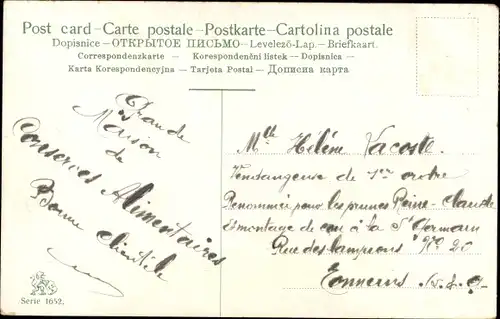 Post card – Carte postale – Postkarte – Cartolina postale
Dopisnice – ОТКРЫТОЕ ПИСЬМО – Levelező-Lap. – Briefkaart.
Correspondenzkarte – Korespondenční lístek – Dopisnica –
Karta Korespondencyjna – Tarjeta Postal – Дописна карта
Grande
Maison
de
Conserves Alimentaires
Bonne
Clientèle
Mlle Hélène Lacoste.
Vendangeuse de 1er ordre
Renommée pour les prunes Reine-Claude
Démontage de cou à la St Germain
Rue des lampions No 20
Tonneins L. & G.
Serie 1652.